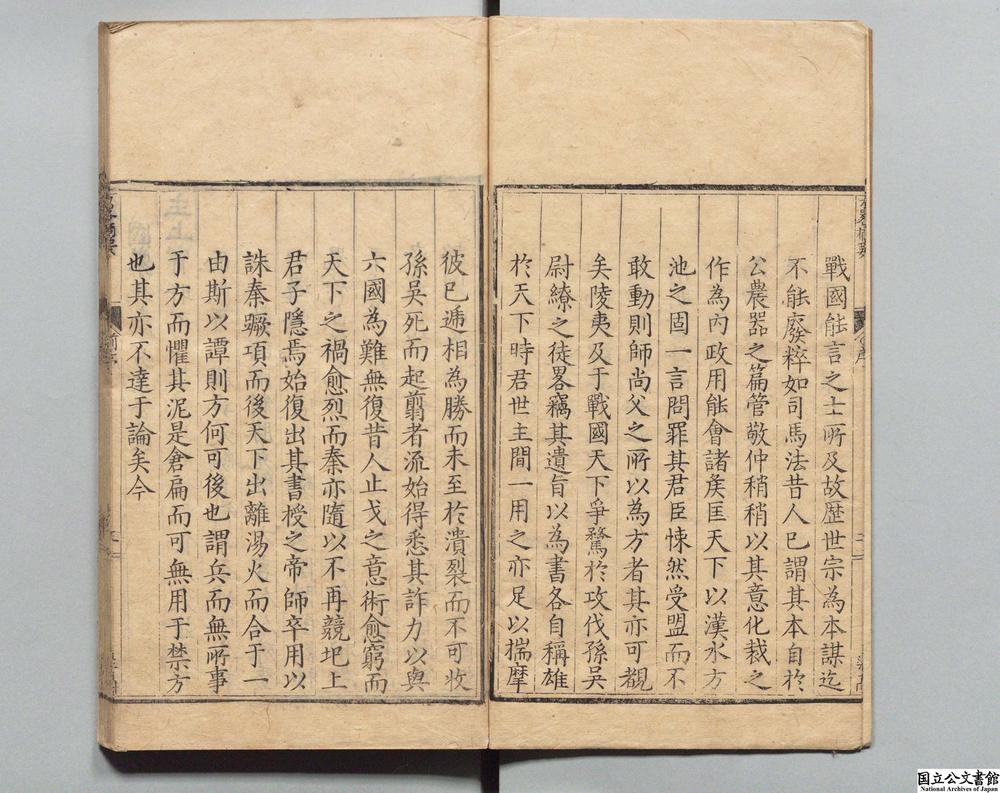 戰國能言之士所及故歴世宗為本謀迄
不能廢粹如司馬法昔人已謂其本自於
公農器之篇管敬仲稍稍以其意化裁之
作為內政用能會諸矦匡天下以漢水方
池之固一言問罪其君臣悚然受盟而不
敢動則師尚父之所以為方者其亦可覩
矣陵夷及于戰國天下爭騖於攻伐孫吳
尉繚之徒畧竊其遺旨以為書各自稱雄
於天下時君世主間一用之亦足以揣摩
彼已遞相為勝而未至於潰裂而不可收
孫吳死而起翦者流始得悉其詐力以與
六國為難無復昔人止戈之意術愈窮而
天下之禍愈烈而秦亦隨以不再競圯上
君子隱焉始復出其書授之帝師卒用以
誅秦蹶項而後天下出離湯火而合于一
由斯以譚則方何可後也謂兵而無所事
于方而懼其泥是倉扁而可無用于禁方
也其亦不達于論矣今
国立公文書館
National Archives of Japan